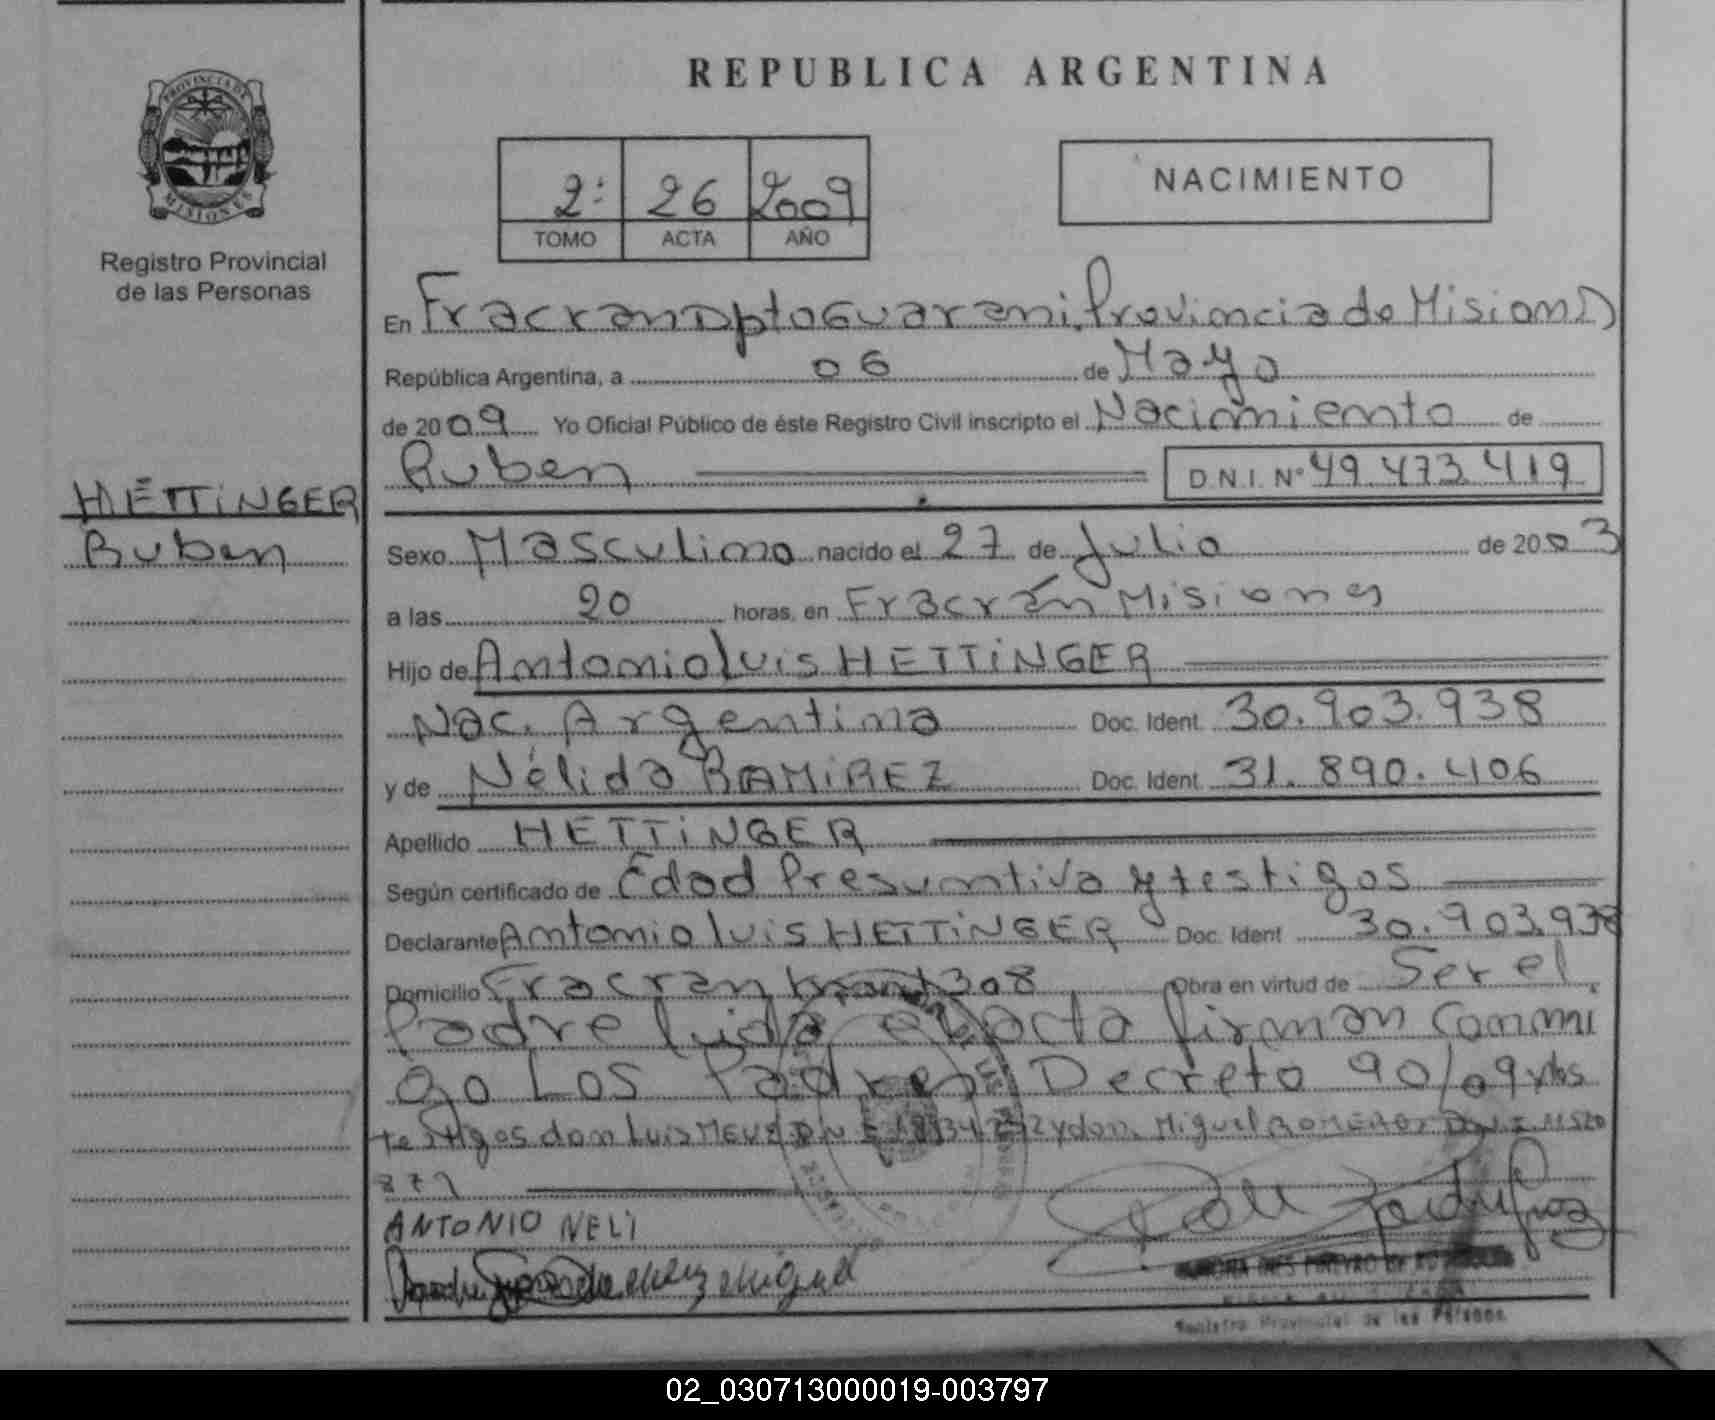 PROVINCIA DE
MISIONES
Registro Provincial
de las Personas
HETTINGER
Ruben
REPUBLICA ARGENTINA
2: 26 2009
TOMO ACTA AÑO
NACIMIENTO
En Fracran Dpto Guarani, Provincia de Misiones
República Argentina, a 06 de Mayo
de 2009 Yo Oficial Público de éste Registro Civil inscripto el Nacimiento de
Ruben D.N.I. Nº 49.473.419
Sexo Masculino nacido el 27 de Julio de 2003
a las 20 horas, en Fracrán Misiones
Hijo de Antonio Luis HETTINGER
Nac. Argentina Doc. Ident. 30.903.938
y de Nélida RAMIREZ Doc. Ident. 31.890.406
Apellido HETTINGER
Según certificado de Edad Presuntiva y testigos
Declarante Antonio Luis HETTINGER Doc. Ident. 30.903.938
Domicilio Fracran 308 Obra en virtud de Ser el
Padre leida el acta firman conmi
go Los Padres Decreto 90/09 y los
testigos don Luis y don Miguel
877
ANTONIO NELI
Miguel
Registro Provincial de las Personas
02_030713000019-003797